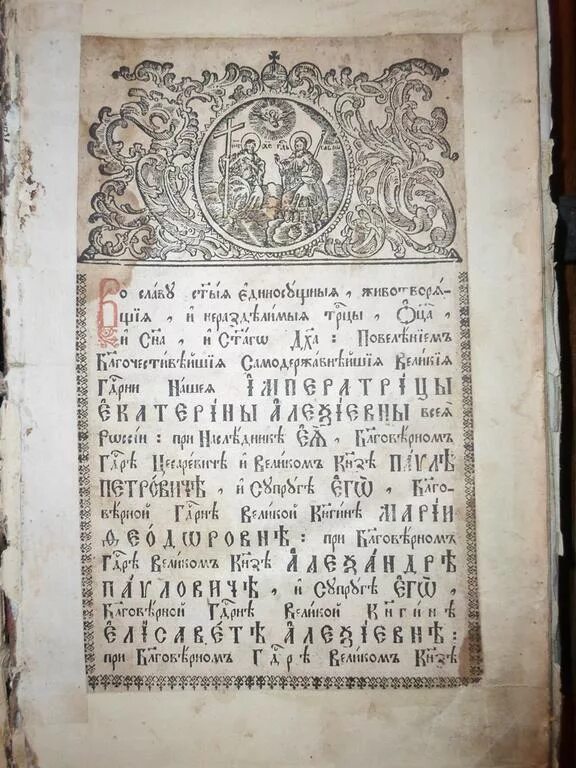 Во славу ст҃ыѧ є҆диносущныѧ, животворѧ-
щїѧ, и҆ нераздѣлимыѧ трⷪ҇цы, Ѻ҆ц҃а̀,
и҆ Сн҃а, и҆ Ст҃агѡ Дх҃а: Повелѣнїемъ
Бл҃гочестивѣйшїѧ Самодержавнѣйшїѧ Великїѧ
Гдⷭ҇рни Нашеѧ І҆МПЕРАТРІЦЫ
Є҆КАТЕРІНЫ А҆ЛЕѮІЕВНЫ всеѧ
Рѡссїи: при Наслѣдникѣ Є҆Ѧ̀, Бл҃говѣрномъ
Гдⷭ҇рѣ Цесаревичѣ и҆ Великомъ Кн҃зѣ ПАѴЛѢ
ПЕТРО́ВИЧѢ, и҆ Супругѣ Є҆ГѠ̀, Бл҃го-
вѣрной Гдⷭ҇рнѣ Великой Кн҃гинѣ МАРІИ
Ѳ҆ЕОДѠРОВНѢ: при Бл҃говѣрномъ
Гдⷭ҇рѣ Великомъ Кн҃зѣ А҆ЛЕѮА́НДРѢ
ПА́ѴЛОВИЧѢ, и҆ Супругѣ Є҆ГѠ̀,
Бл҃говѣрной Гдⷭ҇рнѣ Великой Кн҃гинѣ
Є҆ЛІСАВЕ́ТѢ А҆ЛЕѮІЕВНѢ:
при Бл҃говѣрномъ Гдⷭ҇рѣ Великомъ Кн҃зѣ